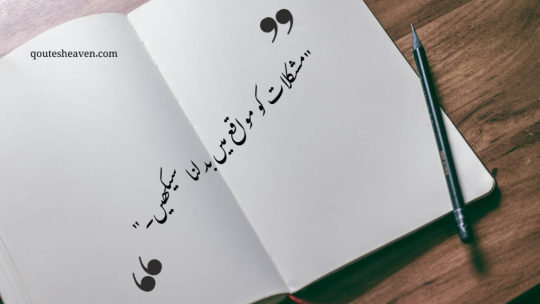 qoutesheaven.com
"مشکلات کو مواقع میں بدلنا سیکھیں۔"